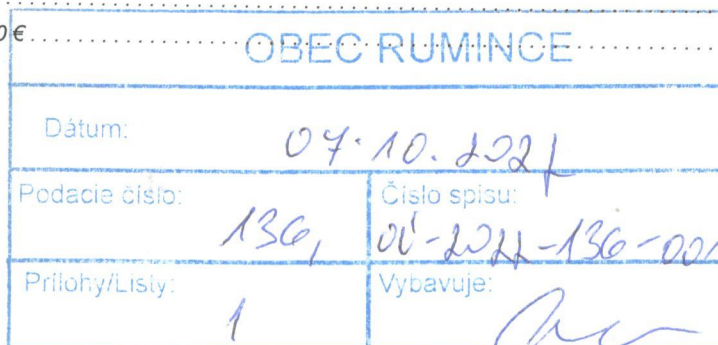 0 €
OBEC RUMINCE
Dátum: 07.10.2021
Podacie číslo: Číslo spisu:
136, 136-001
Prílohy/Listy: Vybavuje:
1